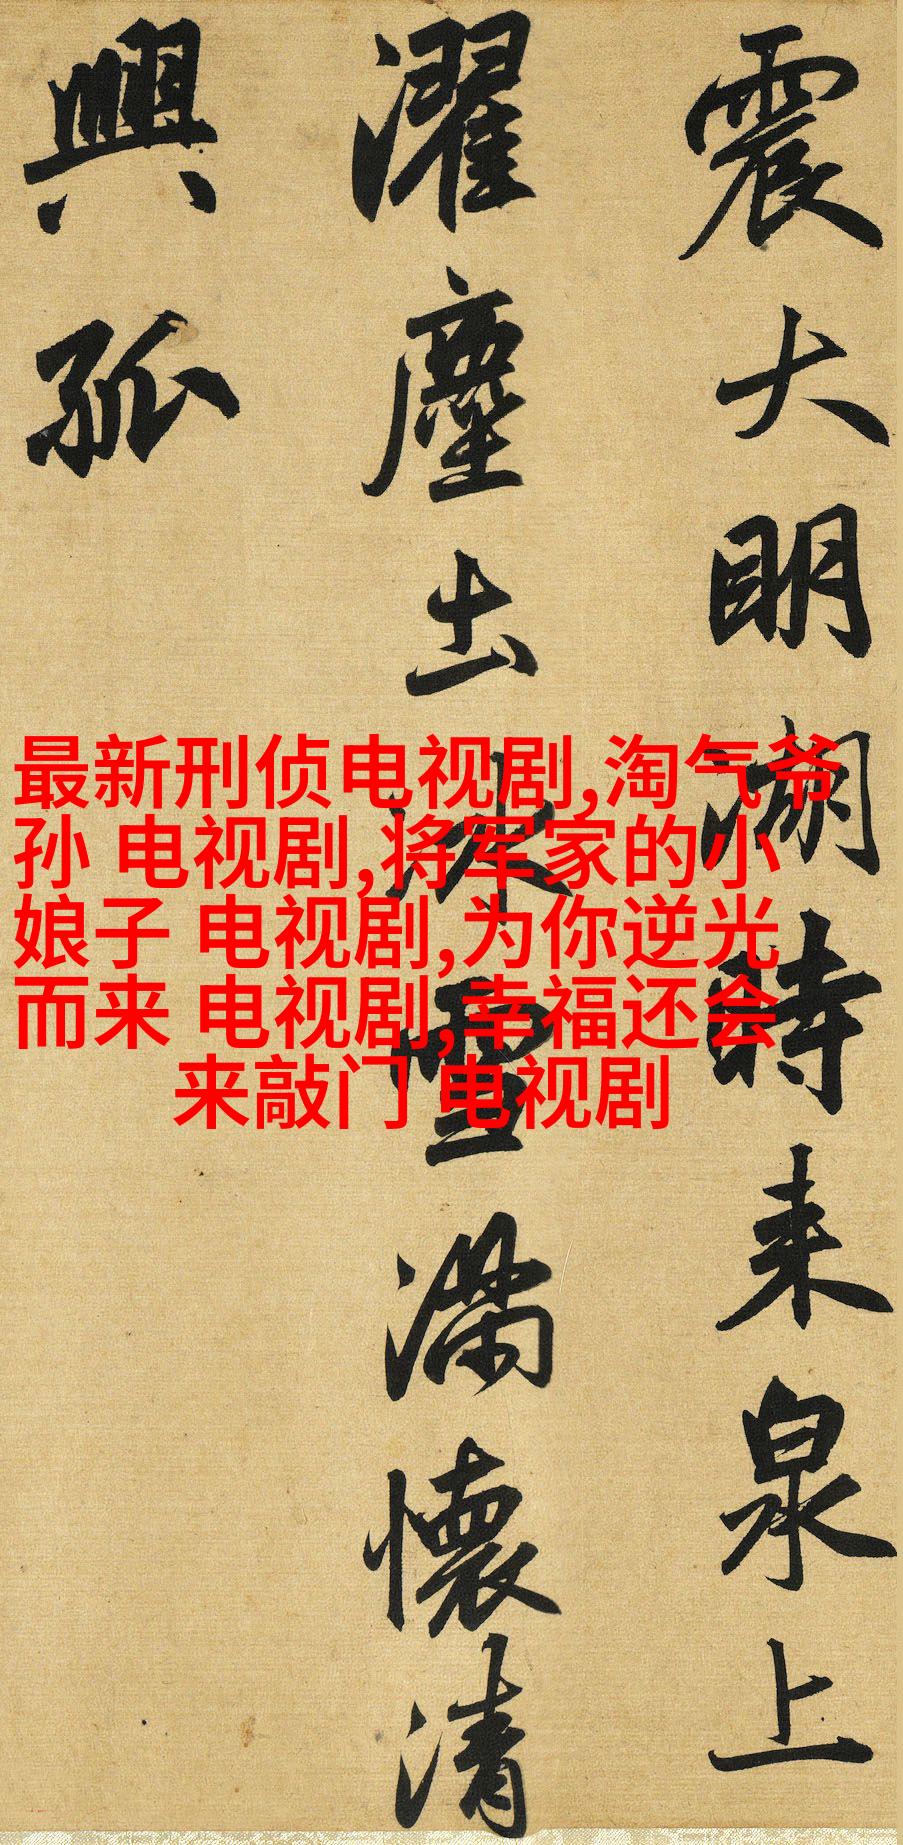 震大明湖時来泉上
濯塵出冰雪滿懷清
興孤
最新刑侦电视剧,淘气爷
孙 电视剧,将军家的小
娘子 电视剧,为你逆光
而来 电视剧,幸福还会
来敲门 电视剧